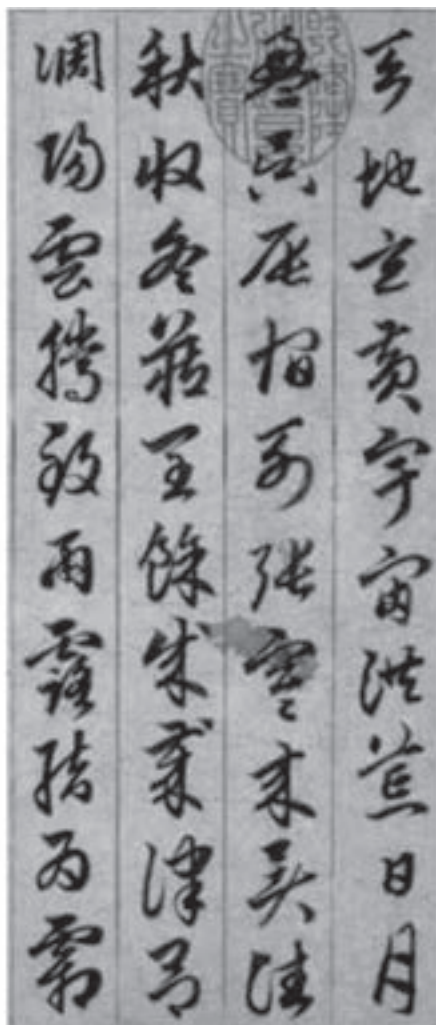 天地玄黃宇宙洪荒日月
盈昃辰宿列張寒来暑往
秋收冬藏閏餘成歲律呂
調陽雲騰致雨露結為霜